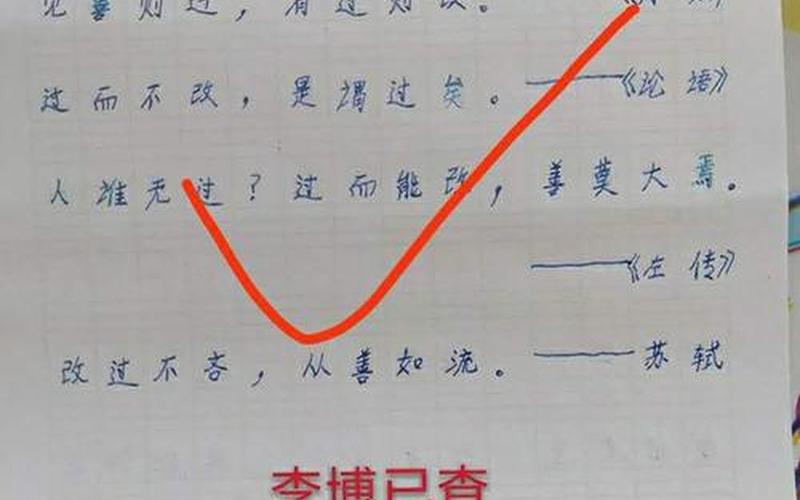 见善则迁，有过则改。
过而不改，是谓过矣。——《论语》
人谁无过？过而能改，善莫大焉。
——《左传》
改过不吝，从善如流。——苏轼
李博已查